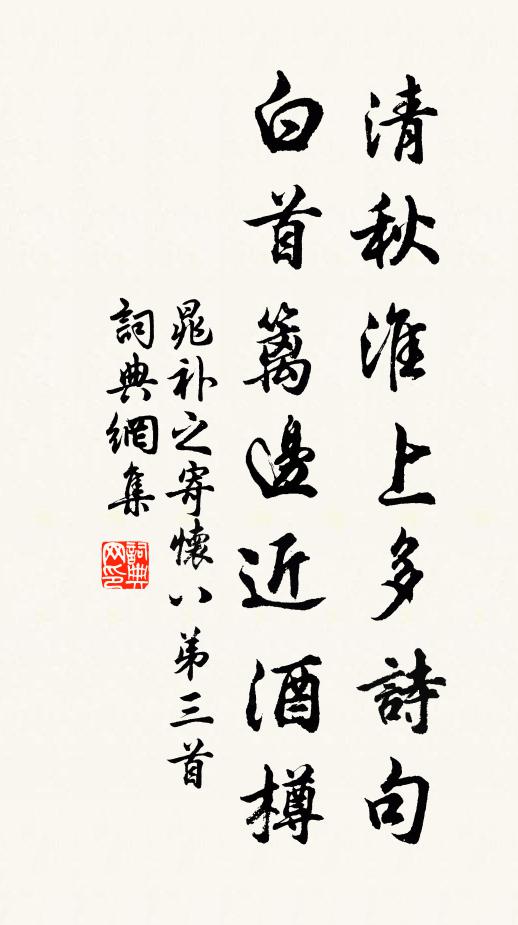 清秋淮上多詩句
白首籬邊近酒樽
晁补之寄懷八第三首
詞典網集
詞典网印